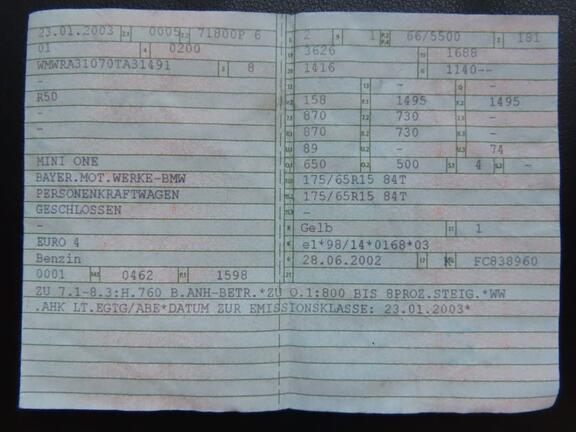 23.01.2003 0005 71800P 6
01 0200
WMWRA31070TA31491 8
-
R50
-
-
MINI ONE
BAYER.MOT.WERKE-BMW
PERSONENKRAFTWAGEN
GESCHLOSSEN
-
EURO 4
Benzin
0001 0462 1598
2 1 66/5500 181
3626 1688
1416 1140--
- -
158 1495 1495
870 730 -
870 730 -
89 - 74
650 500 4 -
175/65R15 84T
175/65R15 84T
-
Gelb 1
e1*98/14*0168*03
28.06.2002 K FC838960
ZU 7.1-8.3:H.760 B.ANH-BETR.*ZU O.1:800 BIS 8PROZ.STEIG.*WW
.AHK LT.EGTG/ABE*DATUM ZUR EMISSIONSKLASSE: 23.01.2003*